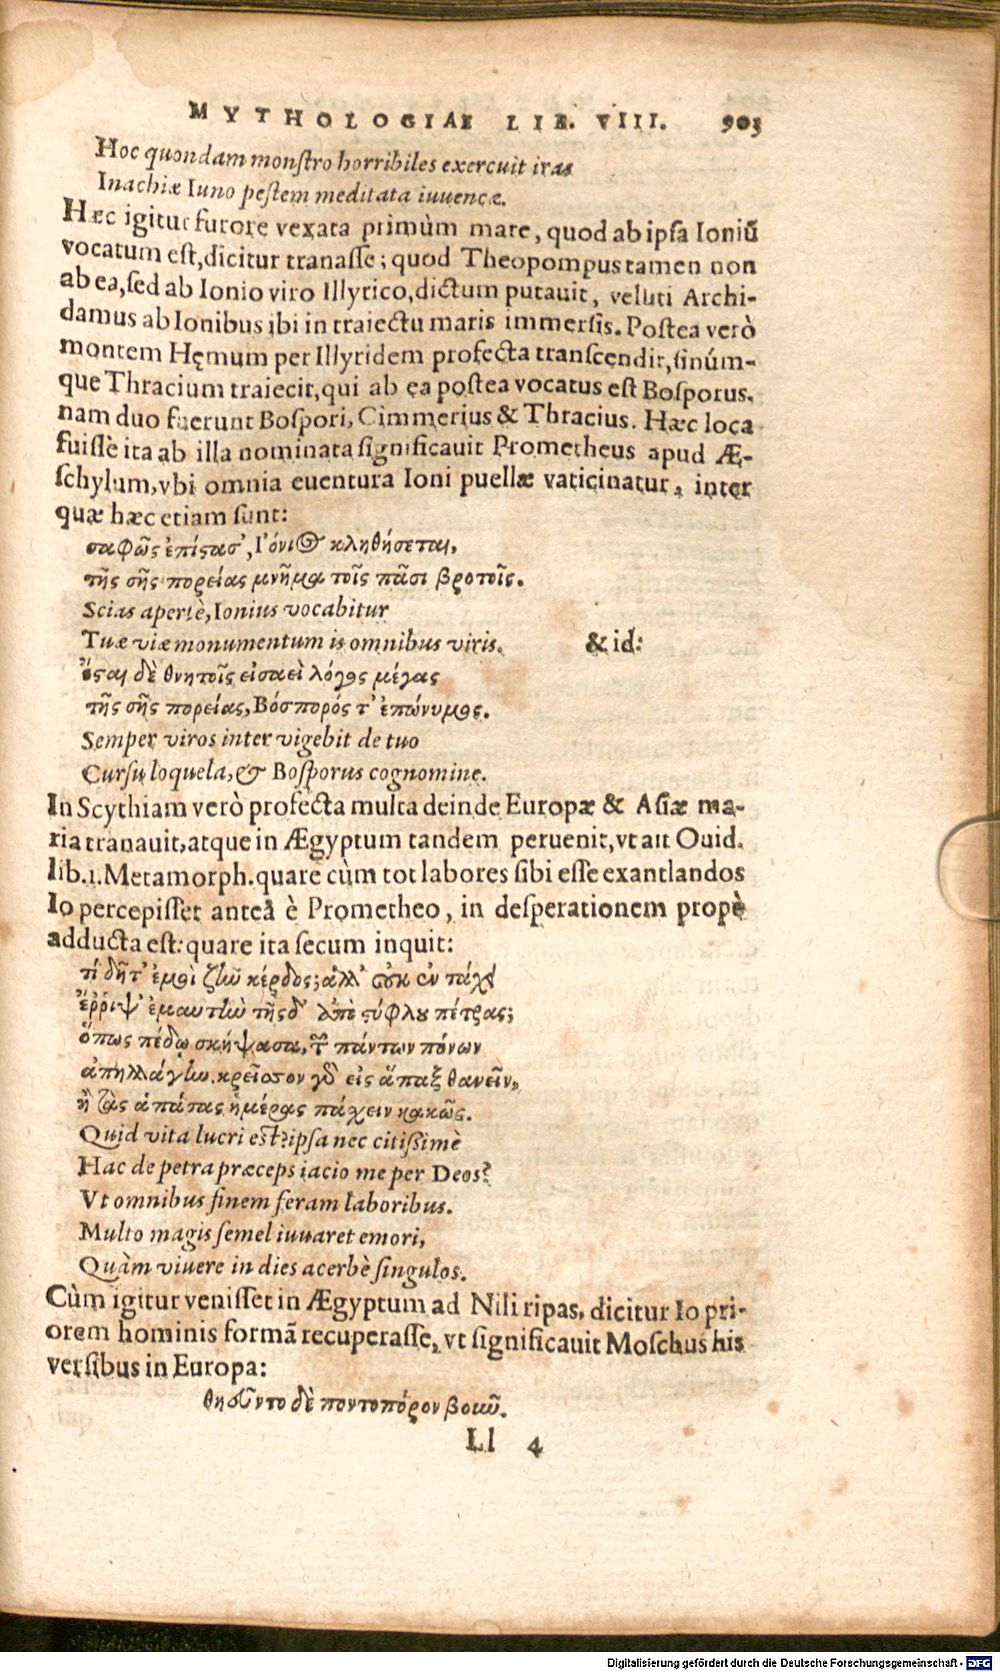 MYTHOLOGIAE LIB. VIII. 903
Hoc quondam monſtro horribiles exercuit iras
Inachiæ Iuno peſtem meditata iuuencæ.
Hæc igitur furore vexata primùm mare, quod ab ipſa Ioniũ
vocatum eſt, dicitur tranaſſe; quod Theopompus tamen non
ab ea, ſed ab Ionio viro Illyrico, dictum putauit, veluti Archi-
damus ab Ionibus ibi in traiectu maris immerſis. Poſtea verò
montem Hęmum per Illyridem profecta tranſcendit, ſinúm-
que Thracium traiecit, qui ab ea poſtea vocatus eſt Boſporus.
nam duo fuerunt Boſpori, Cimmerius & Thracius. Hæc loca
fuiſſe ita ab illa nominata ſignificauit Prometheus apud Æ-
ſchylum, vbi omnia euentura Ioni puellæ vaticinatur, inter
quæ hæc etiam ſunt:
σαφῶς ἐπίςασ', Ἰόνιος κληθήσεται,
τῆς σῆς πορείας μνῆμα τοῖς πᾶσι βροτοῖς.
Scias apertè, Ionius vocabitur
Tuæ viæ monumentum is omnibus viris. & id:
ἔςαι δὲ θνητοῖς εἰσαεὶ λόγος μέγας
τῆς σῆς πορείας, Βόσπορός τ' ἐπώνυμος.
Semper viros inter vigebit de tuo
Curſu loquela, & Boſporus cognomine.
In Scythiam verò profecta multa deinde Europæ & Aſiæ ma-
ria tranauit, atque in Ægyptum tandem peruenit, vt ait Ouid.
lib.1. Metamorph. quare cùm tot labores ſibi eſſe exantlandos
Io percepiſſet anteà è Prometheo, in deſperationem propè
adducta eſt: quare ita ſecum inquit:
τί δῆτ' ἐμοὶ ζῆν κέρδος; ἀλλ' οὐκ ἐν τάχει
ἔρριψ' ἐμαυτὴν τῆσδ' ἀπὸ ςύφλου πέτρας;
ὅπως πέδῳ σκήψασα, τῶν πάντων πόνων
ἀπηλλάγην. κρεῖσσον γὸ εἰς ἅπαξ θανεῖν,
ἢ τὰς ἁπάσας ἡμέρας πάχειν κακῶς.
Quid vita lucri eſt? ipſa nec citiſsimè
Hac de petra præceps iacio me per Deos?
Vt omnibus finem feram laboribus.
Multo magis ſemel iuuaret emori,
Quàm viuere in dies acerbè ſingulos.
Cùm igitur veniſſet in Ægyptum ad Nili ripas, dicitur Io pri-
orem hominis formã recuperaſſe, vt ſignificauit Moſchus his
verſibus in Europa:
θηοῦντο δὲ ποντοπόρον βοῦν.
Ll 4
Digitalisierung gefördert durch die Deutsche Forschungsgemeinschaft - DFG